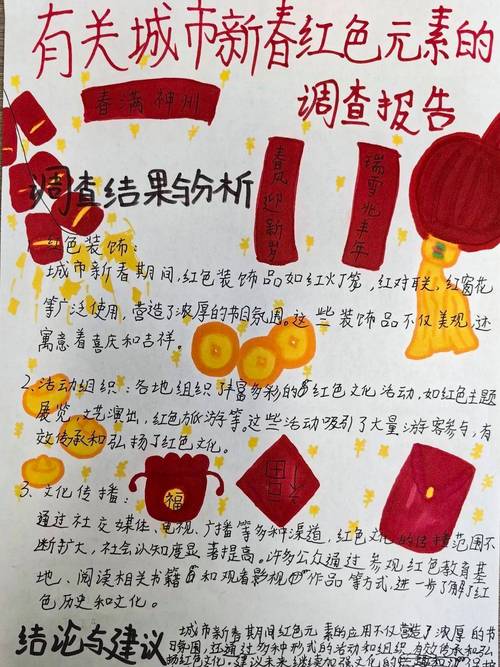 有关城市新春红色元素的
调查报告
春满神州
春风迎新岁
瑞雪兆丰年
调查结果与分析
红色装饰：
城市新春期间，红色装饰品如红灯笼，红对联，红窗花
等广泛使用，营造了浓厚的节日氛围。这些装饰品不仅美观，还
寓意着喜庆和吉祥。
2、活动组织：各地组织丰富多彩的红色文化活动，如红色主题
展览，文艺演出，红色旅游等。这些活动吸引了大量游客参与，有
效传承和弘扬了红色文化。
3、文化传播：
福
通过社交媒体、电视、广播等多种渠道，红色文化的传播范围不
断扩大，社会认知度显著提高。许多公众通过参观红色教育基
地、阅读相关书籍和观看影视作品等方式，进一步了解了红
色历史和文化。
结论与建议
城市新春期间红色元素的应用不仅营造了浓厚的节
日氛围，还通过多种形式的活动和组织，有效传承和弘
扬红色文化，建议未来继续加强文化的